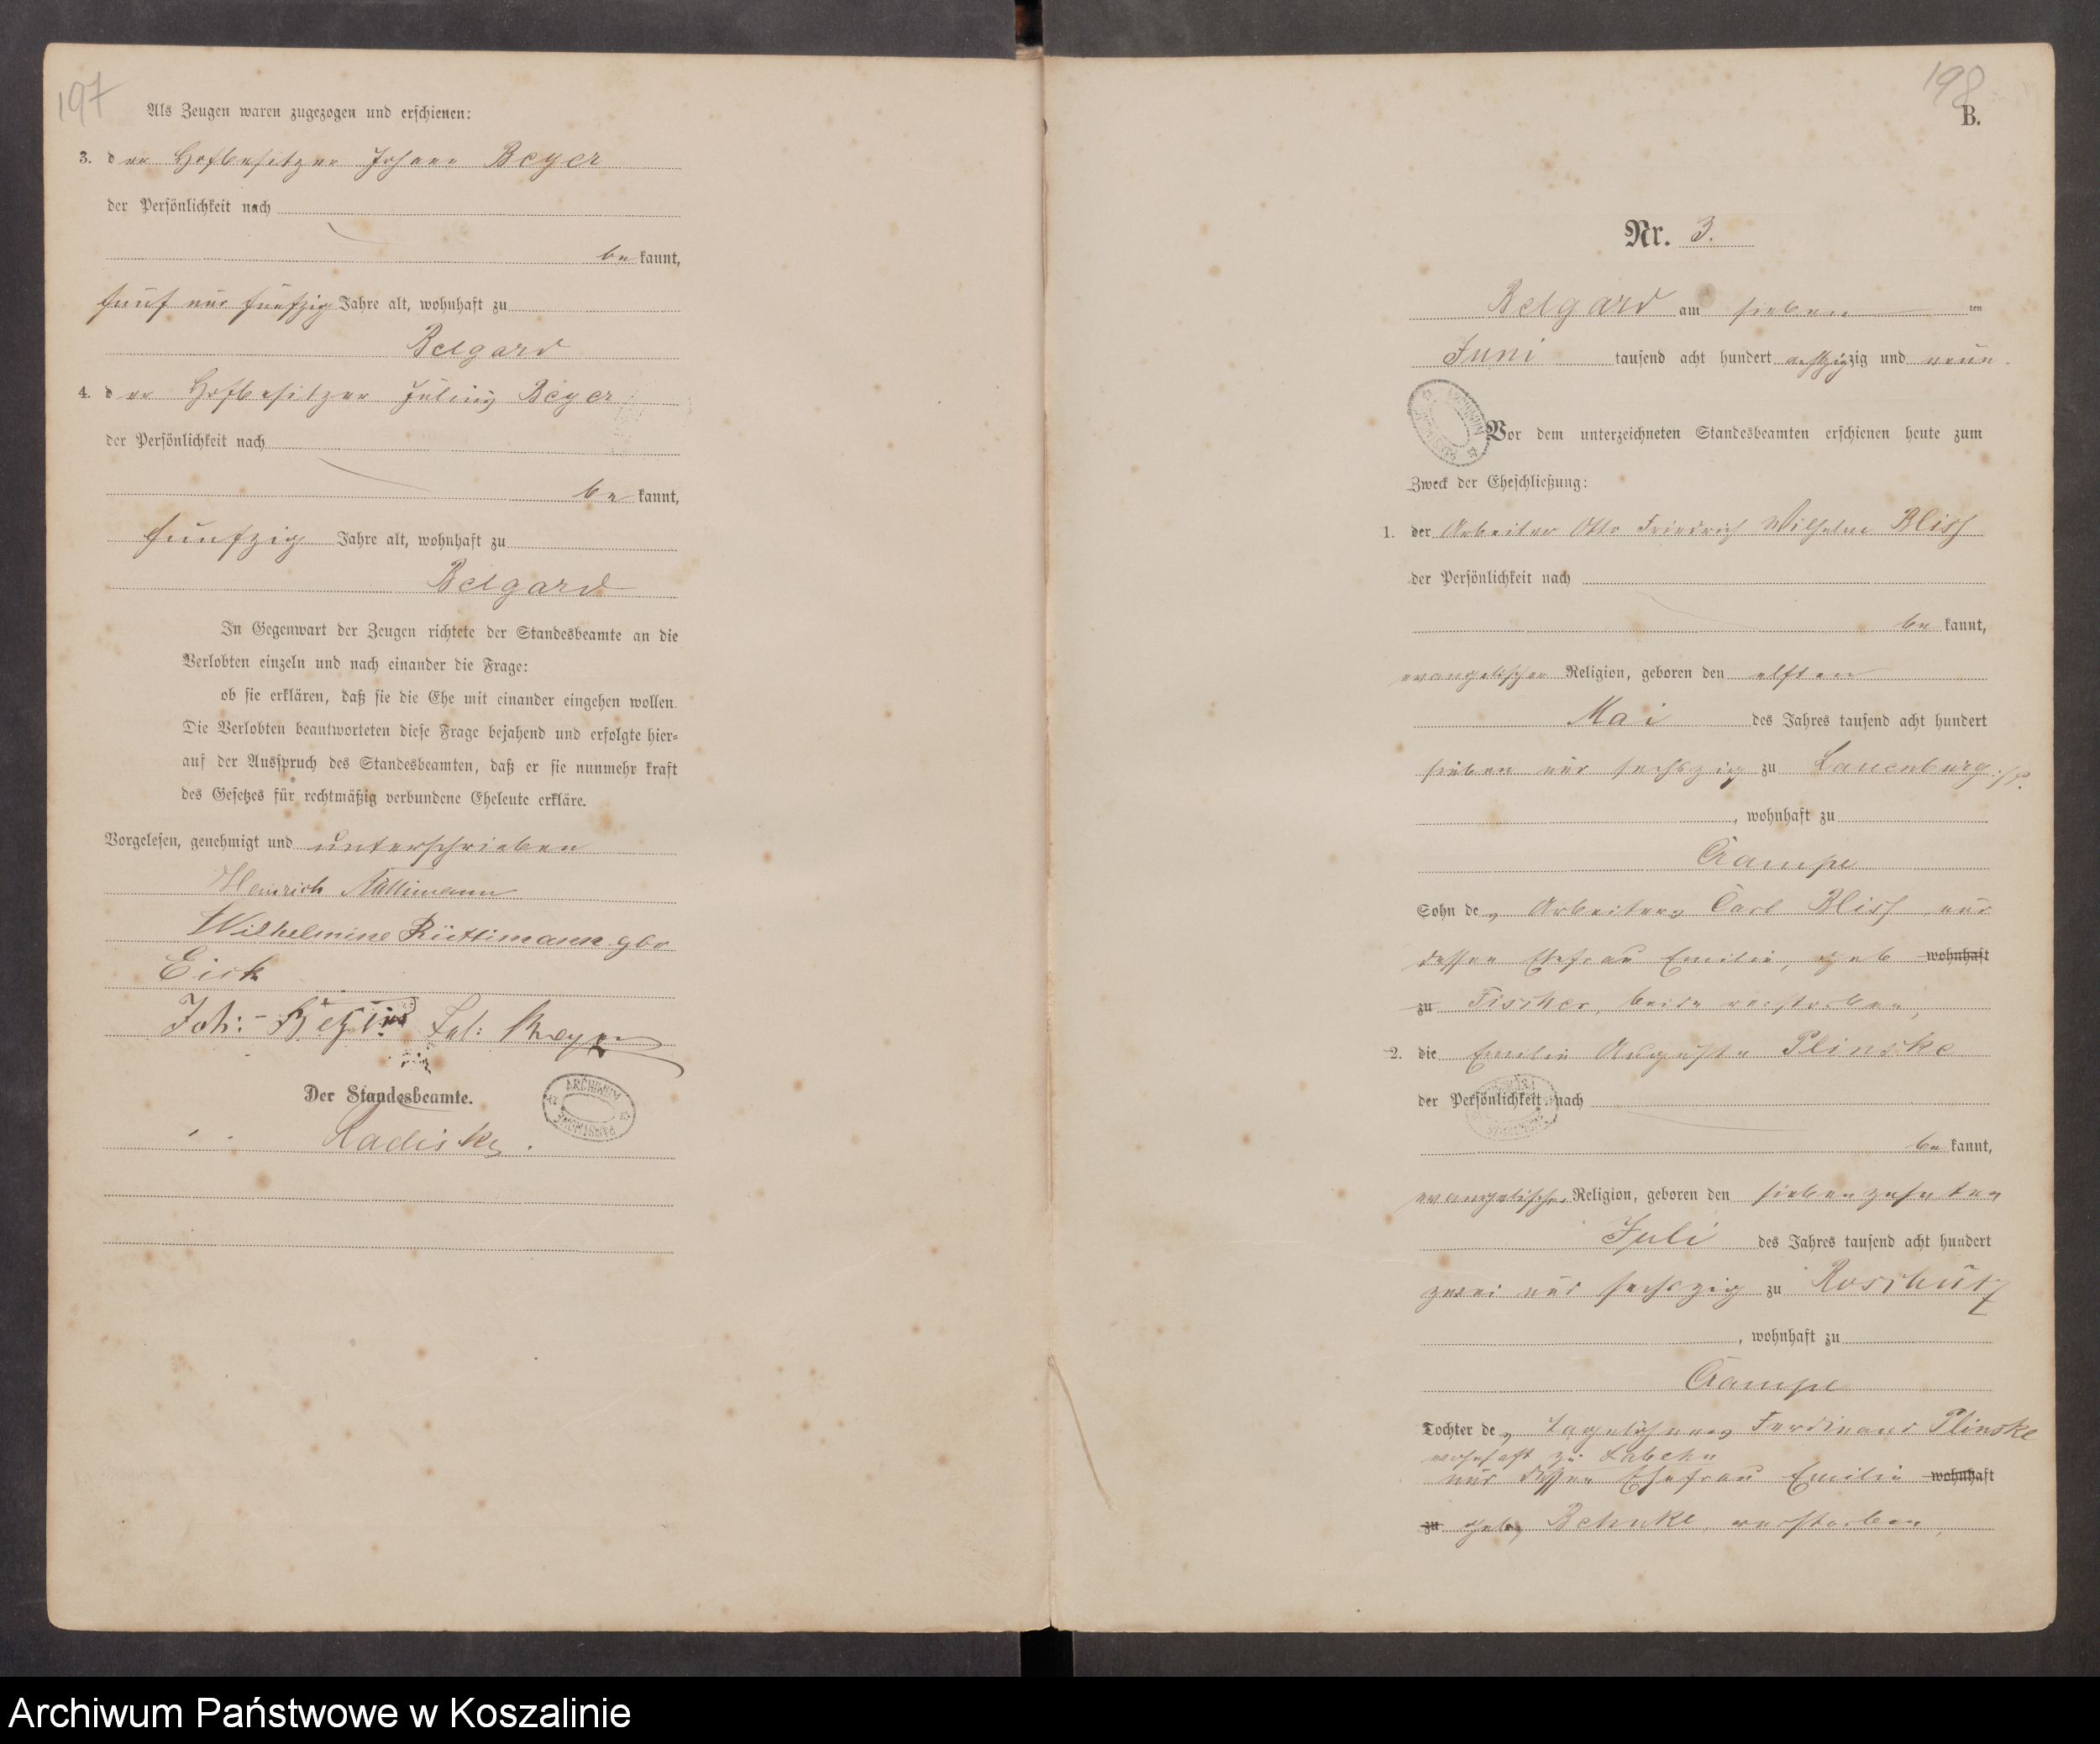 197
Als Zeugen waren zugezogen und erschienen:
3. der Hofbesitzer Johann Beyer
der Persönlichkeit nach
be kannt,
fünf und fünfzig Jahre alt, wohnhaft zu
Belgard
4. der Hofbesitzer Julius Beyer
der Persönlichkeit nach
be kannt,
fünfzig Jahre alt, wohnhaft zu
Belgard
In Gegenwart der Zeugen richtete der Standesbeamte an die
Verlobten einzeln und nach einander die Frage:
ob sie erklären, daß sie die Ehe mit einander eingehen wollen.
Die Verlobten beantworteten diese Frage bejahend und erfolgte hier=
auf der Ausspruch des Standesbeamten, daß er sie nunmehr kraft
des Gesetzes für rechtmäßig verbundene Eheleute erkläre.
Vorgelesen, genehmigt und unterschrieben
Heinrich Rüttimann
Wilhelmine Rüttimann gbr
Eick
Joh: Beyer Jul: Beyer
Der Standesbeamte.
ARCHIWUM PAŃSTWOWE
Radiske
198
B.
Nr. 3.
Belgard am sieben ten
Juni tausend acht hundert achtzig und neun.
Vor dem unterzeichneten Standesbeamten erschienen heute zum
Zweck der Eheschließung:
1. der Arbeiter Otto Friedrich Wilhelm Blisch
der Persönlichkeit nach
be kannt,
evangelischer Religion, geboren den elften
Mai des Jahres tausend acht hundert
sieben und sechszig zu Lauenburg i/P.
, wohnhaft zu
Crampe
Sohn des Arbeiters Carl Blisch und
dessen Ehefrau Emilie, geb wohnhaft
zu Fischer, beide verstorben,
2. die Emilie Auguste Plinske
der Persönlichkeit nach
be kannt,
evangelischer Religion, geboren den siebenzehnten
Juli des Jahres tausend acht hundert
zwei und sechszig zu Roschütz
, wohnhaft zu
Crampe
Tochter des Tagelöhners Ferdinand Plinske
wohnhaft zu Labehn
und dessen Ehefrau Emilie wohnhaft
zu geb. Behnke, verstorben,
Archiwum Państwowe w Koszalinie